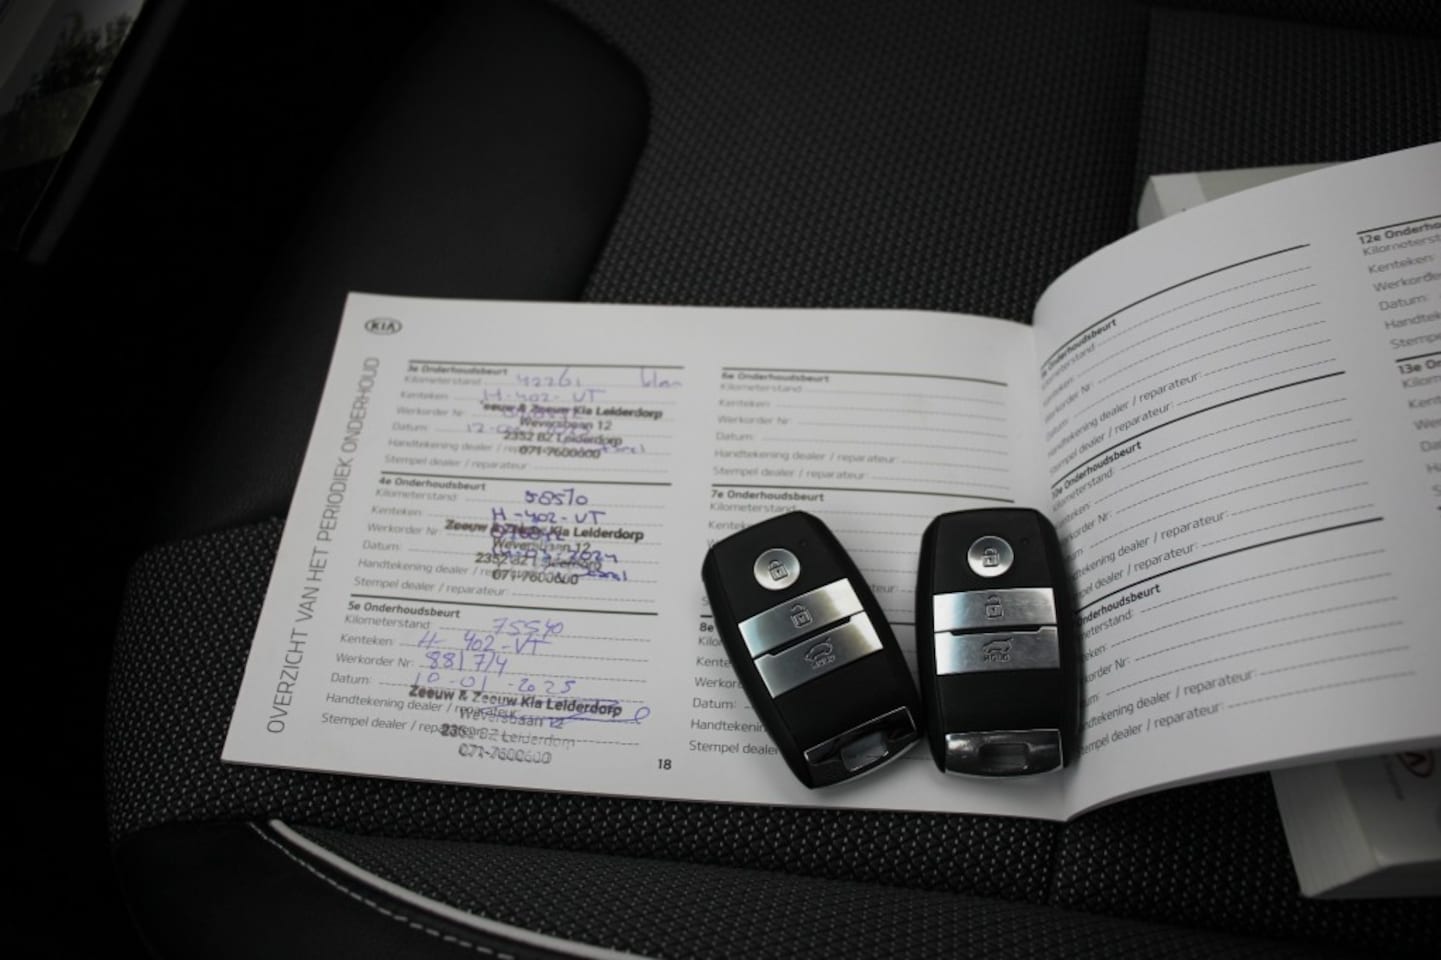 KIA
OVERZICHT VAN HET PERIODIEK ONDERHOUD
3e Onderhoudsbeurt
Kilometerstand
Kenteken: H-402-VT
Werkorder Nr:
Datum: 12-
Handtekening dealer /
Stempel dealer / reparateur:
Zeeuw & Zeeuw Kia Leiderdorp
Weversbaan 12
2352 BZ Leiderdorp
071-7600600
4e Onderhoudsbeurt
Kilometerstand: 58510
Kenteken: H-402-VT
Werkorder Nr:
Datum: 2024
Handtekening dealer /
Stempel dealer / reparateur:
Zeeuw & Zeeuw Kia Leiderdorp
Weversbaan 12
2352 BZ Leiderdorp
071-7600600
5e Onderhoudsbeurt
Kilometerstand: 75590
Kenteken: H-402-VT
Werkorder Nr: 881774
Datum: 10-01-2025
Handtekening dealer / reparateur:
Stempel dealer /
Zeeuw & Zeeuw Kia Leiderdorp
Weversbaan 12
2352 BZ Leiderdorp
071-7600600
18
6e Onderhoudsbeurt
Kilometerstand:
Kenteken:
Werkorder Nr:
Datum:
Handtekening dealer / reparateur:
Stempel dealer / reparateur:
7e Onderhoudsbeurt
Kilometerstand:
Kenteken
8e
Kilo
Kente
Werko
Datum:
Handteke
Stempel dealer
Onderhoudsbeurt
Kilometerstand:
Kenteken:
Werkorder Nr:
Datum:
Handtekening dealer / reparateur:
Stempel dealer / reparateur:
10e Onderhoudsbeurt
Kilometerstand:
Kenteken:
Werkorder Nr:
Datum:
Handtekening dealer / reparateur:
Stempel dealer / reparateur:
Onderhoudsbeurt
Kilometerstand:
Kenteken:
Werkorder Nr:
Datum:
Handtekening dealer / reparateur:
Stempel dealer / reparateur:
12e Onderho
Kilometerst
Kenteken:
Werkorde
Datum:
Handteke
Stempe
13e On
Kilom